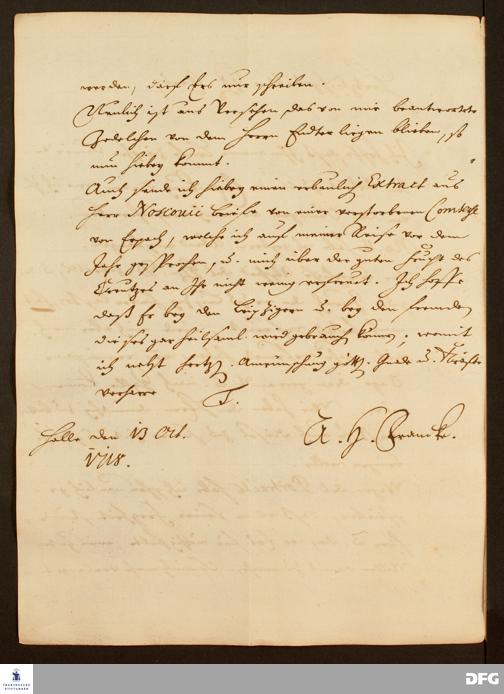 werden, darf Er's nur schreiben.
Neulich ist aus Versehen, das von mir beantwortete
Zedelchen von dem Herrn Endter liegen blieben, so
nun hiebey kommt.
Auch sende ich hiebey einen erbaulich Extract aus
Herr Noscovii briefe von einer verstorbenen Comtesse
von Erpach, welche ich auf meiner Reise vor dem
Jahr gesprochen, u. mich über der guten Frucht des
Creutzes an Ihr nicht wenig erfreuet. Ich hoffe
daß Er bey den Leipzigern u. bey den fremden
dieses gar heilsaml. wird gebrauchen können; womit
ich nebst hertzl. Anwünschung göttl. Gnade u.
verharre T.
Halle den 13 Oct.
1718.
A. H. Francke.
FRANCKESCHE
STIFTUNGEN
DFG